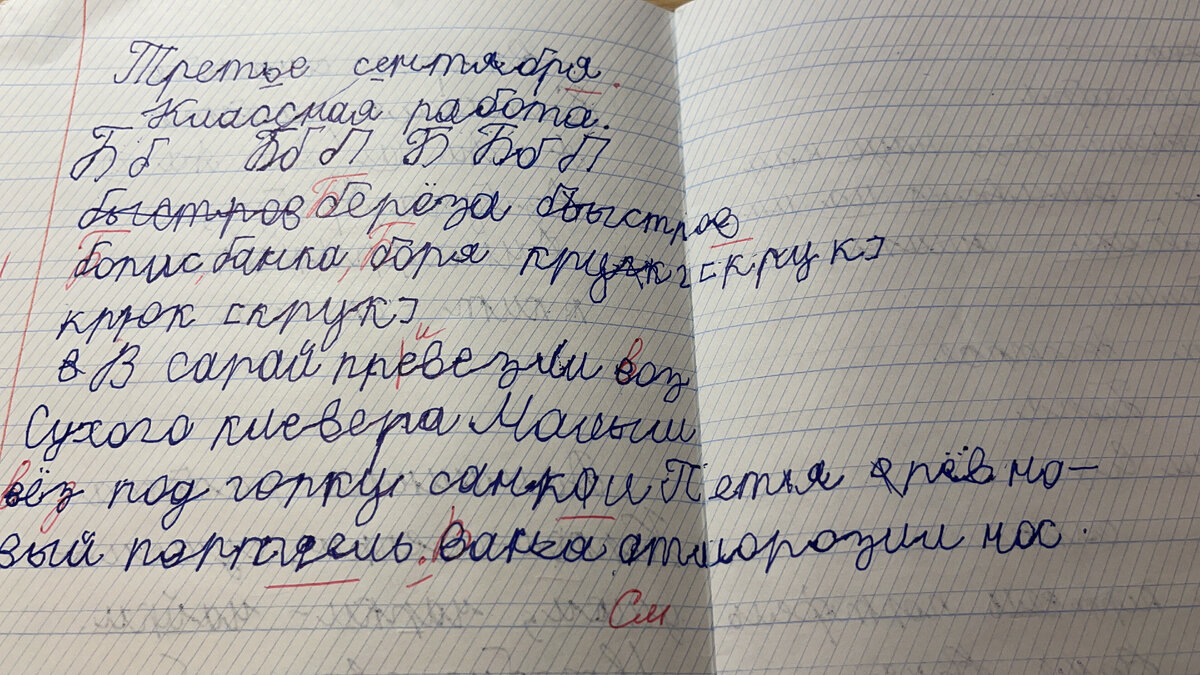 Третье сентября.
Классная работа.
Бб БбП Б БбП
быстров берёза быстров
борис, банка, боря крук [крук]
крюк [крук]
в В сарай превезли воз
Сухого клевера Малыш
вёз под горку санкои Петья рёв но-
вый портдель. Ванька отморозил нос.
См